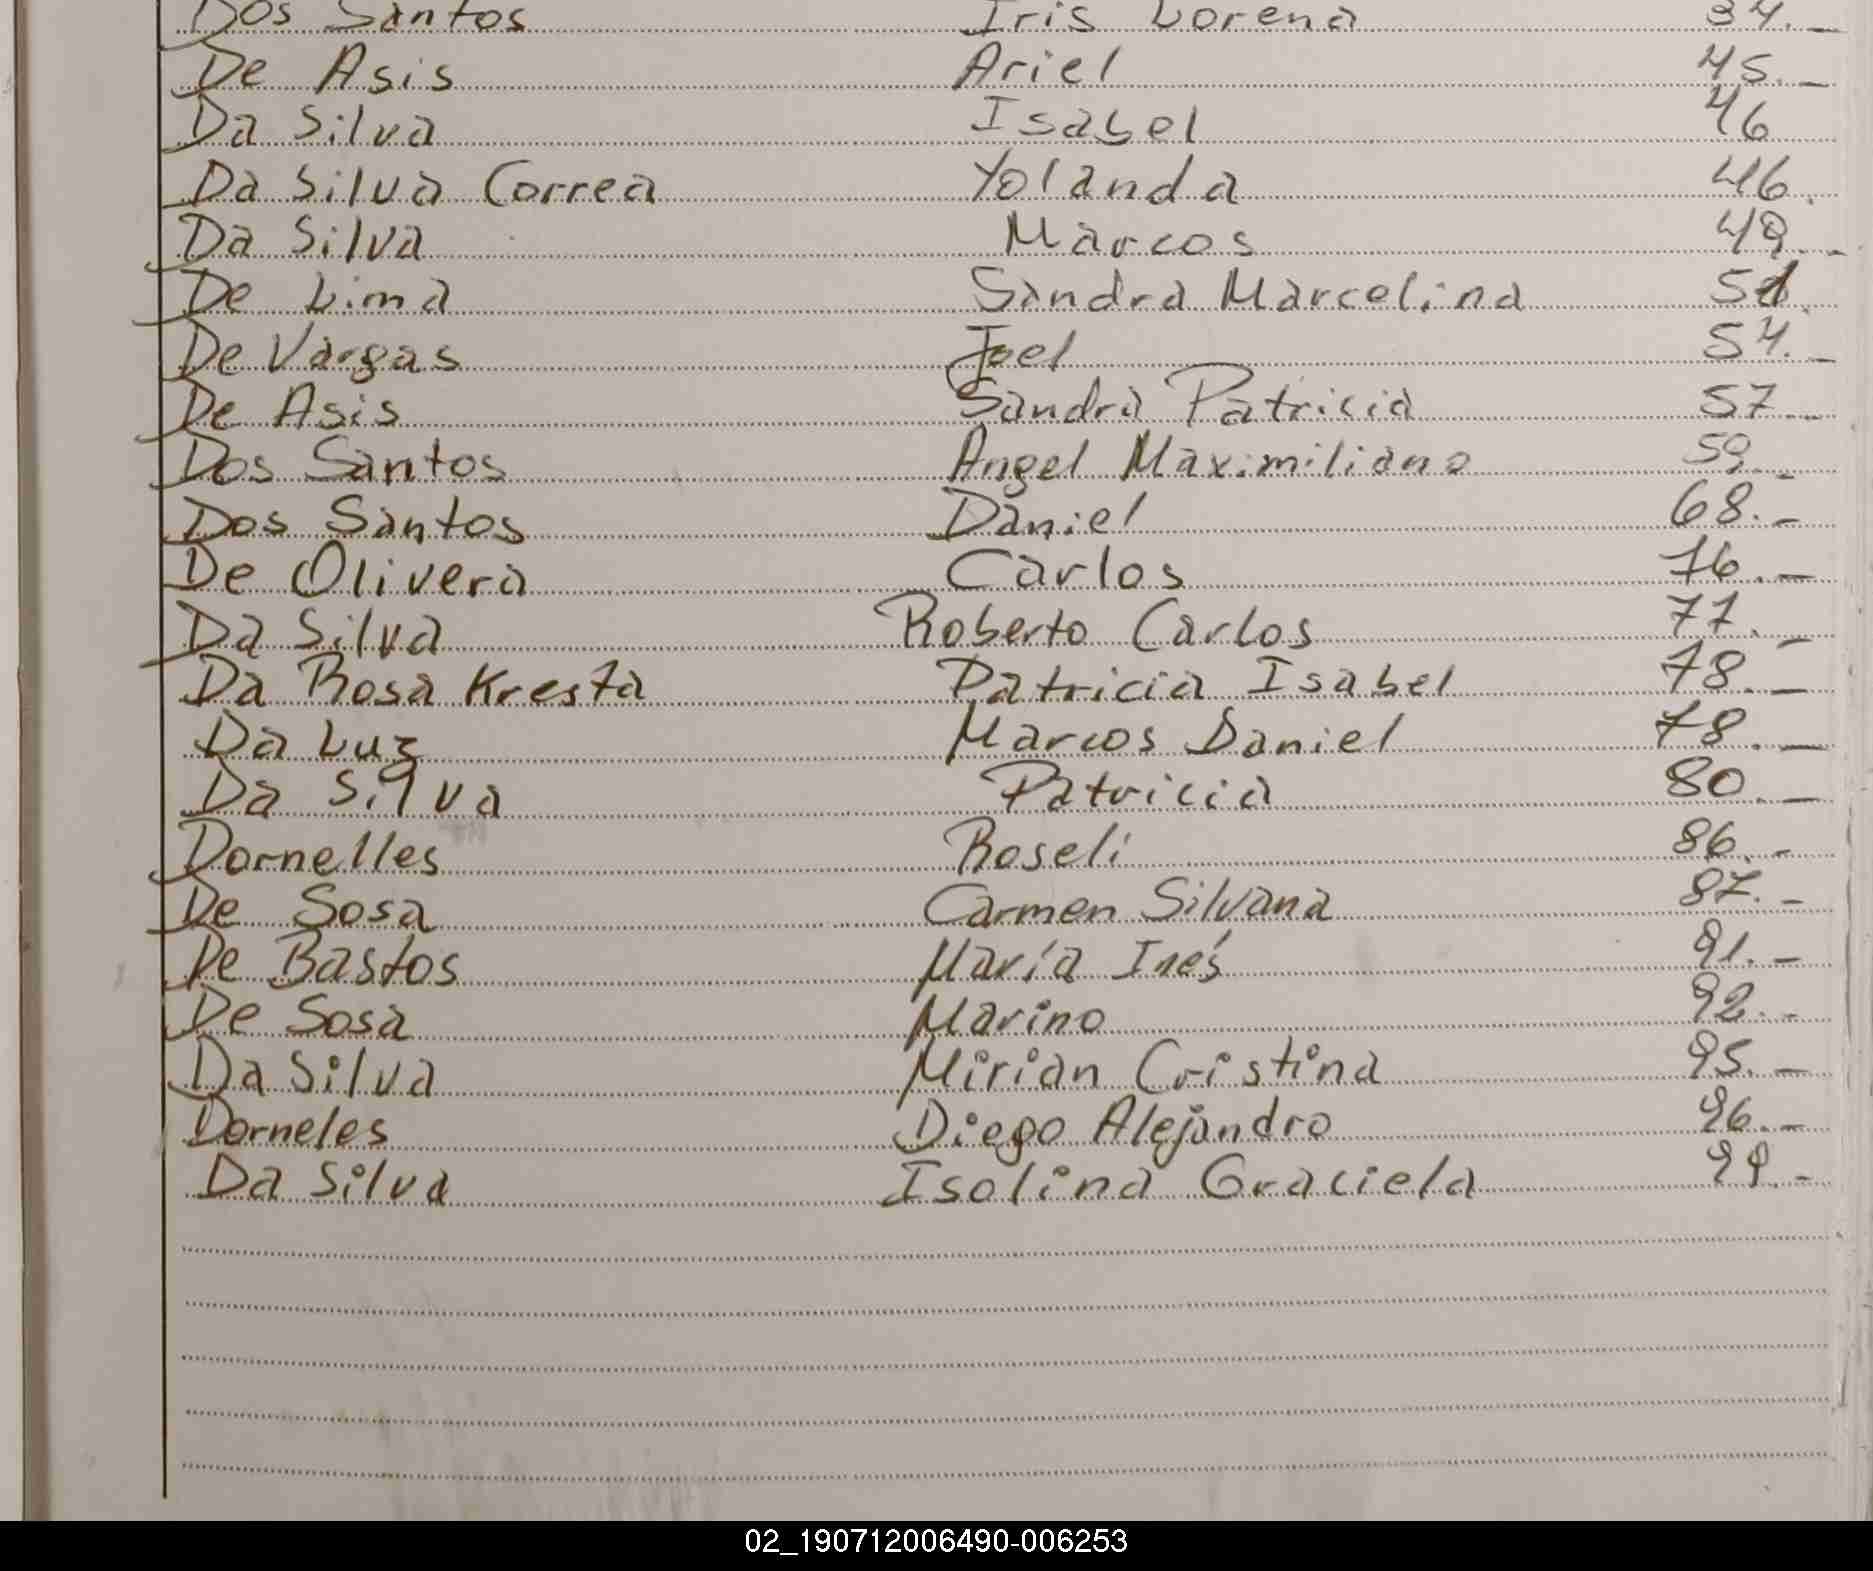 Dos Santos Iris Lorena 34.-
De Asis Ariel 45.-
Da Silva Isabel 46
Da Silva Correa Yolanda 46.
Da Silva Marcos 49.-
De Lima Sandra Marcelina 51.
De Vargas Joel 54.-
De Asis Sandra Patricia 57.-
Dos Santos Angel Maximiliano 59.-
Dos Santos Daniel 68.-
De Olivera Carlos 76.-
Da Silva Roberto Carlos 77.-
Da Rosa Kresta Patricia Isabel 78.-
Da Luz Marcos Daniel 78.-
Da Silva Patricia 80.-
Dornelles Roseli 86.-
De Sosa Carmen Silvana 87.-
De Bastos María Inés 91.-
De Sosa Marino 92.-
Da Silva Mirian Cristina 95.-
Dorneles Diego Alejandro 96.-
Da Silva Isolina Graciela 99.-
02_190712006490-006253